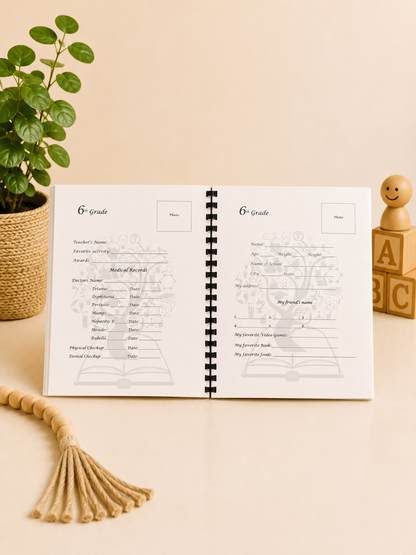 6th Grade
Photo
Teacher's Name:
Favorite activity:
Awards:
Medical Records
Doctors Name:
Tetanus Date:
Diphtheria Date:
Pertusis Date:
Mumps Date:
Hepatitis B Date:
Measles Date:
Rubella Date:
Physical Checkup Date:
Dental Checkup Date:
6th Grade
Photo
Name:
Age: Weight: Height:
Name of School
City: State:
My address:
My friend's name
1. 2. 3.
4. 5. 6.
My favorite Video Games:
My favorite Book:
My favorite foods:
A
B C